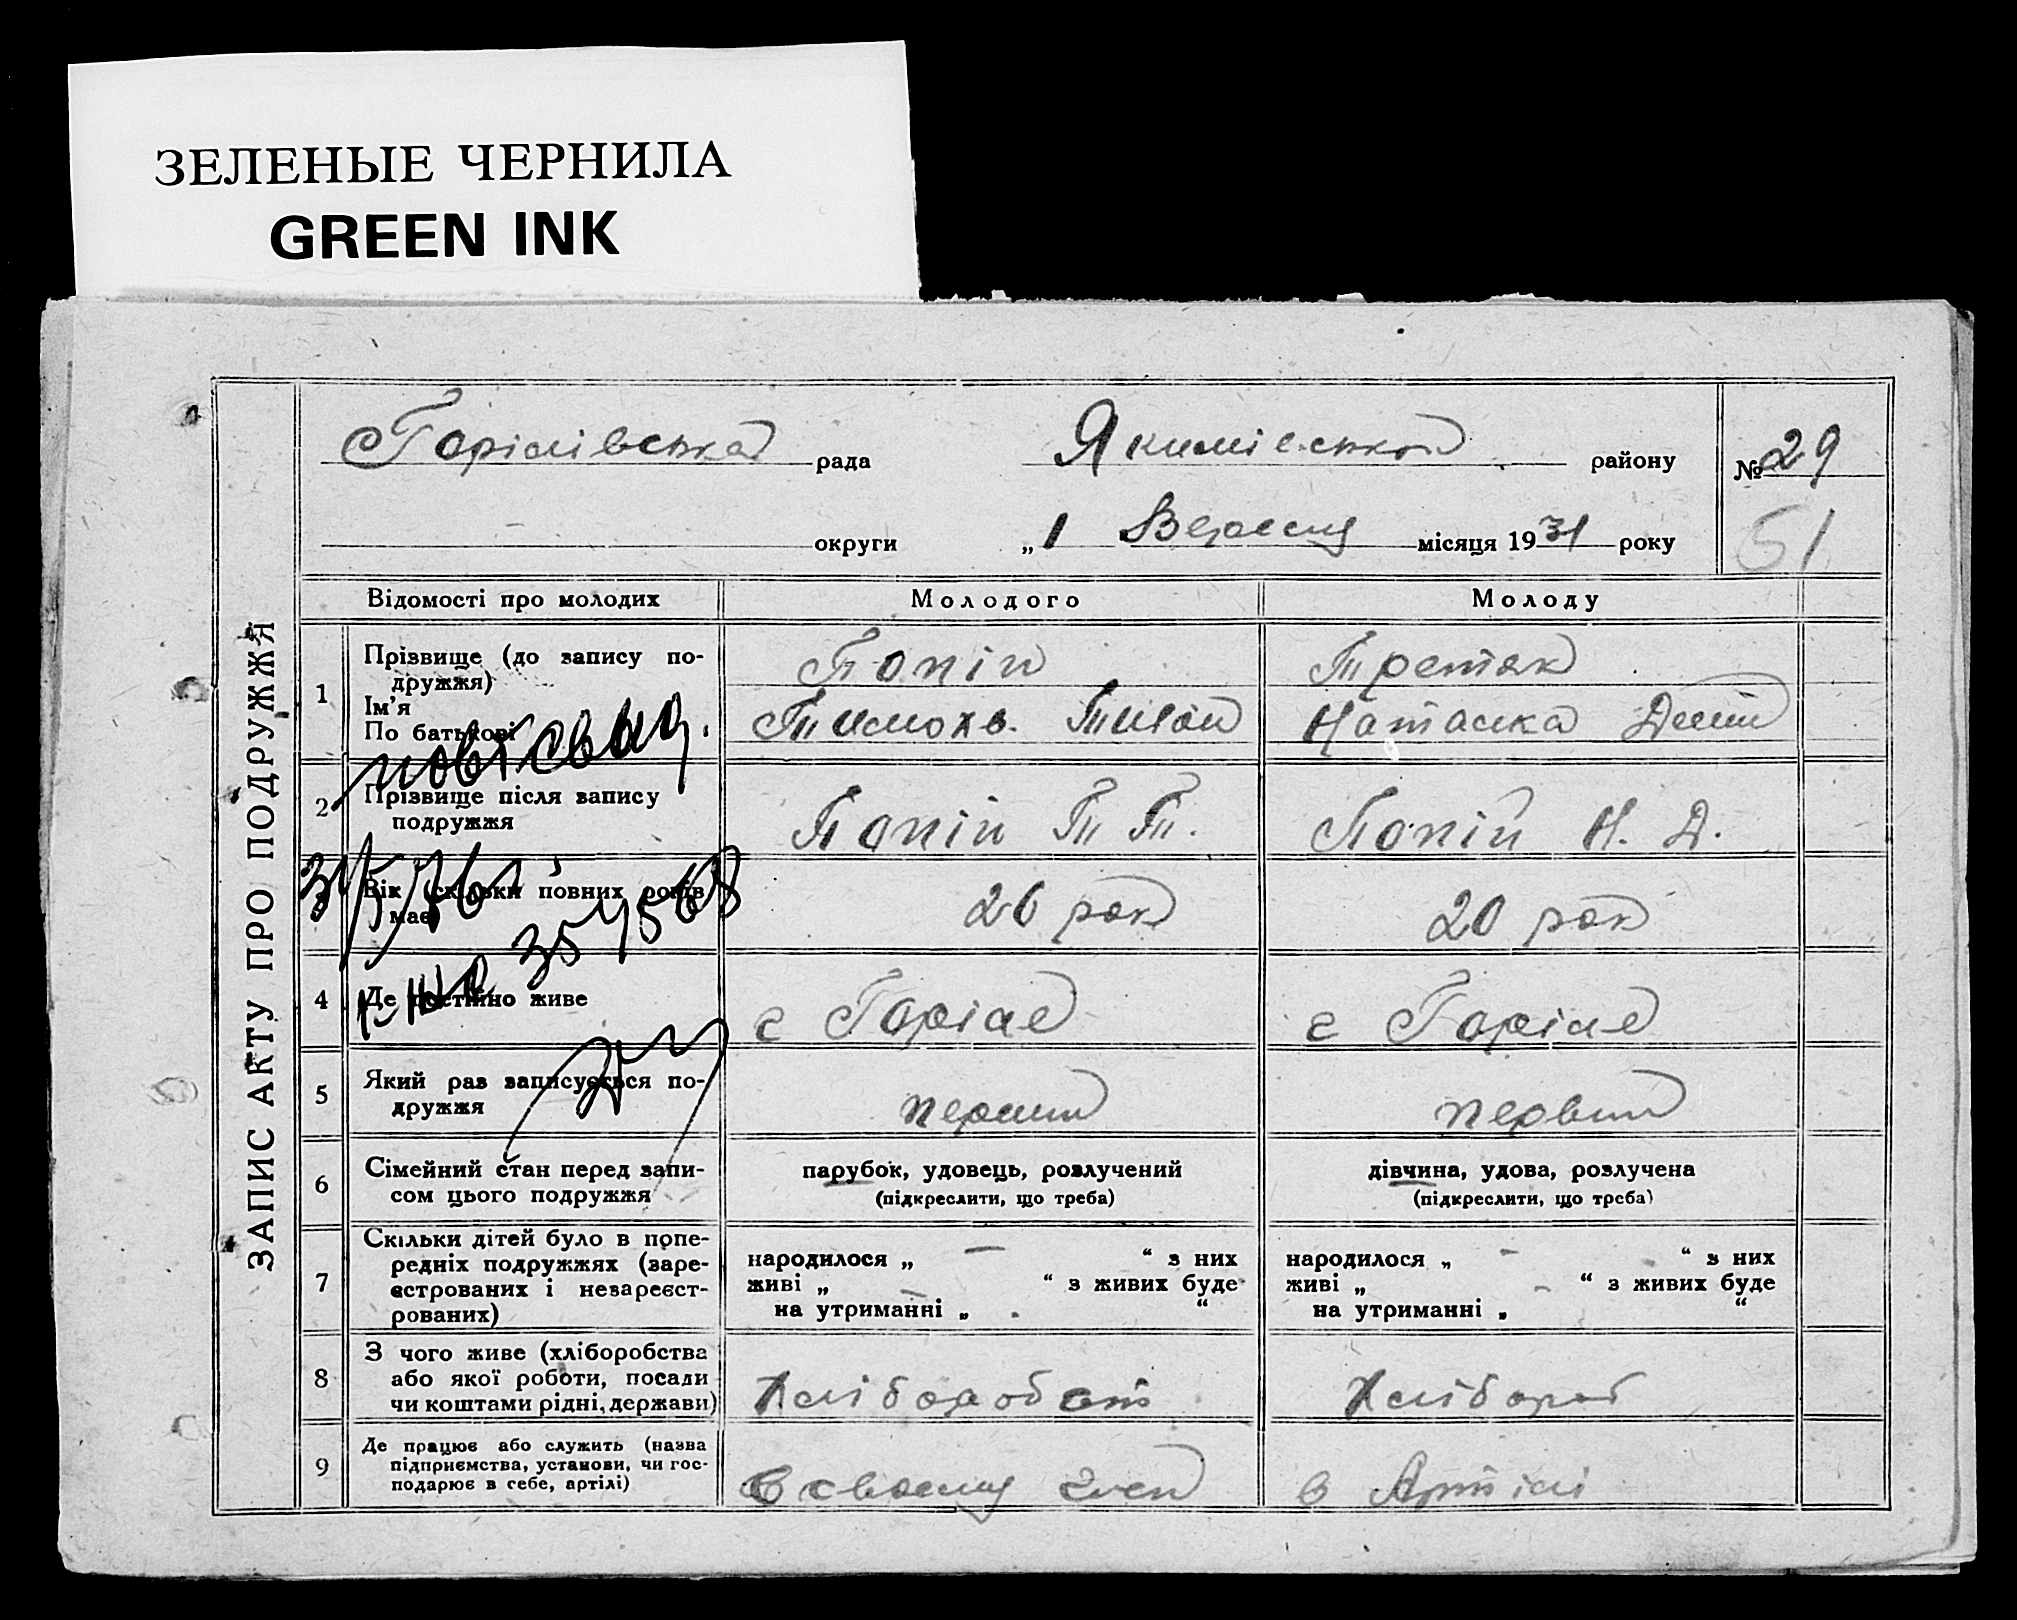 ЗЕЛЕНЫЕ ЧЕРНИЛА
GREEN INK
ЗАПИС АКТУ ПРО ПОДРУЖЖЯ
Горілівська рада Якимівської району № 29
округи „1 Вересня місяця 1931 року 51
Відомості про молодих Молодого Молоду
1 Прізвище (до запису подружжя) Попій Третяк
Ім'я
По батькові Тимохв. Наталка
2 Прізвище після запису
подружжя Попій Т Т. Попій Н. Д.
Вік (скільки повних років
має) 26 рок 20 рок
4 Де постійно живе с Горіле с Горіле
5 Який раз записується по-
дружжя перший первий
6 Сімейний стан перед запи-
сом цього подружжя
парубок, удовець, розлучений
(підкреслити, що треба)
дівчина, удова, розлучена
(підкреслити, що треба)
7 Скільки дітей було в попе-
редніх подружжях (заре-
єстрованих і незареєст-
рованих)
народилося „ — “ з них
живі „ — “ з живих буде
на утриманні „ “
народилося „ - “ з них
живі „ - “ з живих буде
на утриманні „ “
8 З чого живе (хліборобства
або якої роботи, посади
чи коштами рідні, держави) Хлібороб
9 Де працює або служить (назва
підприємства, установи, чи гос-
подарює в себе, артілі) В своему в Артілі